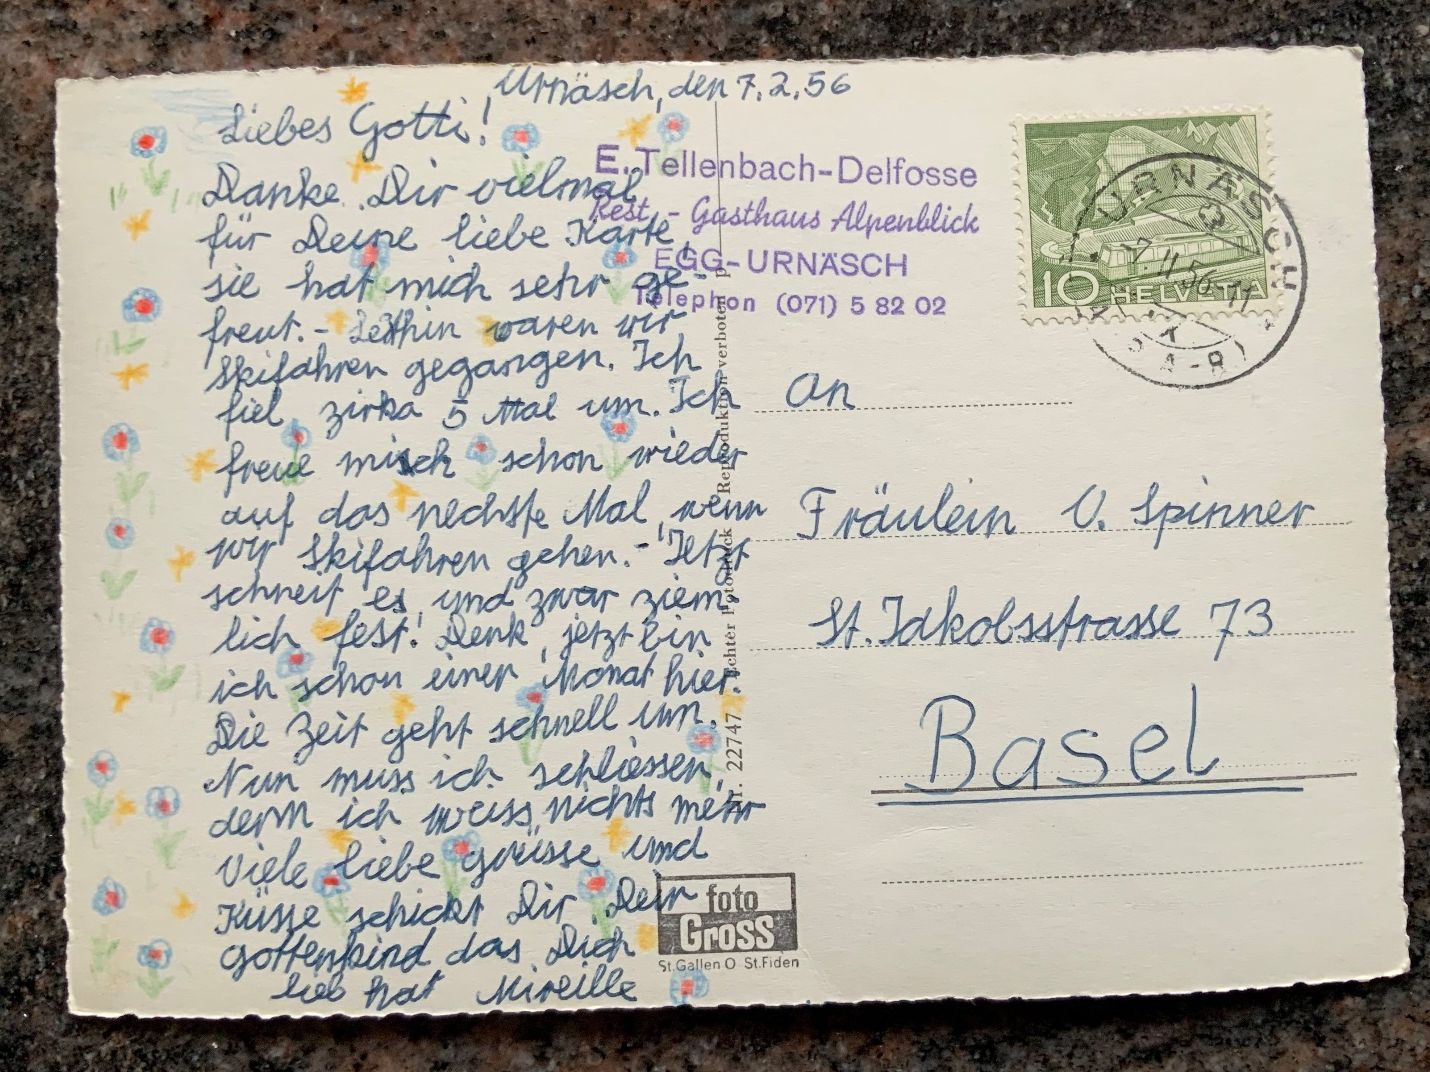 Urnäsch, den 7. 2. 56
Liebes Gotti!
Danke Dir vielmal
für Deine liebe Karte,
sie hat mich sehr ge-
freut. - Letthin waren wir
Skifahren gegangen. Ich
fiel zirka 5 Mal um. Ich
freue misch schon wieder
auf das nechste Mal, wenn
wir Skifahren gehen. - Jetzt
schneit es, und zwar ziem-
lich fest! Denk, jetzt bin
ich schon einen Monat hier.
Die Zeit geht schnell um.
Nun muss ich schliessen,
denn ich weiss nichts mehr
Viele liebe grüsse und
Küsse schickt Dir Dein
gottenkind das Dich
lieb hat Mireille
E. Tellenbach-Delfosse
Rest. - Gasthaus Alpenblick
EGG-URNÄSCH
Telephon (071) 5 82 02
10 HELVETIA
URNÄSCH
-7.II.56.-11
(A-R)
An
Fräulein V. Spinner
St. Jakobsstrasse 73
Basel
Nr. 22747 Echter Fotodruck Reproduktion verboten p
foto
GROSS
St.Gallen O St.Fiden